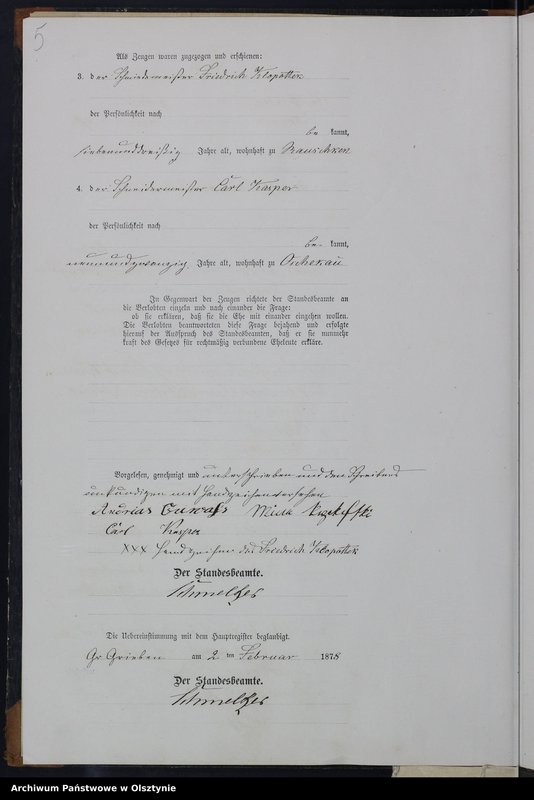 5
Als Zeugen waren zugezogen und erschienen:
3. der Schmiedemeister Friedrich Klopotteck
der Persönlichkeit nach
be kannt,
siebenunddreißig Jahre alt, wohnhaft zu Rauschken
4. der Schneidermeister Carl Kasper
der Persönlichkeit nach
be kannt,
neunundzwanzig Jahre alt, wohnhaft zu Oschekau
In Gegenwart der Zeugen richtete der Standesbeamte an
die Verlobten einzeln und nach einander die Frage:
ob sie erklären, daß sie die Ehe mit einander eingehen wollen.
Die Verlobten beantworteten diese Frage bejahend und erfolgte
hierauf der Ausspruch des Standesbeamten, daß er sie nunmehr
kraft des Gesetzes für rechtmäßig verbundene Eheleute erkläre.
Vorgelesen, genehmigt und unterschrieben und dem Schreibens
unkundigen mit Handzeichen versehen
Carl Kasper
XXX Handzeichen des Friedrich Klopotteck
Der Standesbeamte.
Schmelzer
Die Uebereinstimmung mit dem Hauptregister beglaubigt.
Gr Grieben am 2 ten Februar 1878
Der Standesbeamte.
Schmelzer
Archiwum Państwowe w Olsztynie